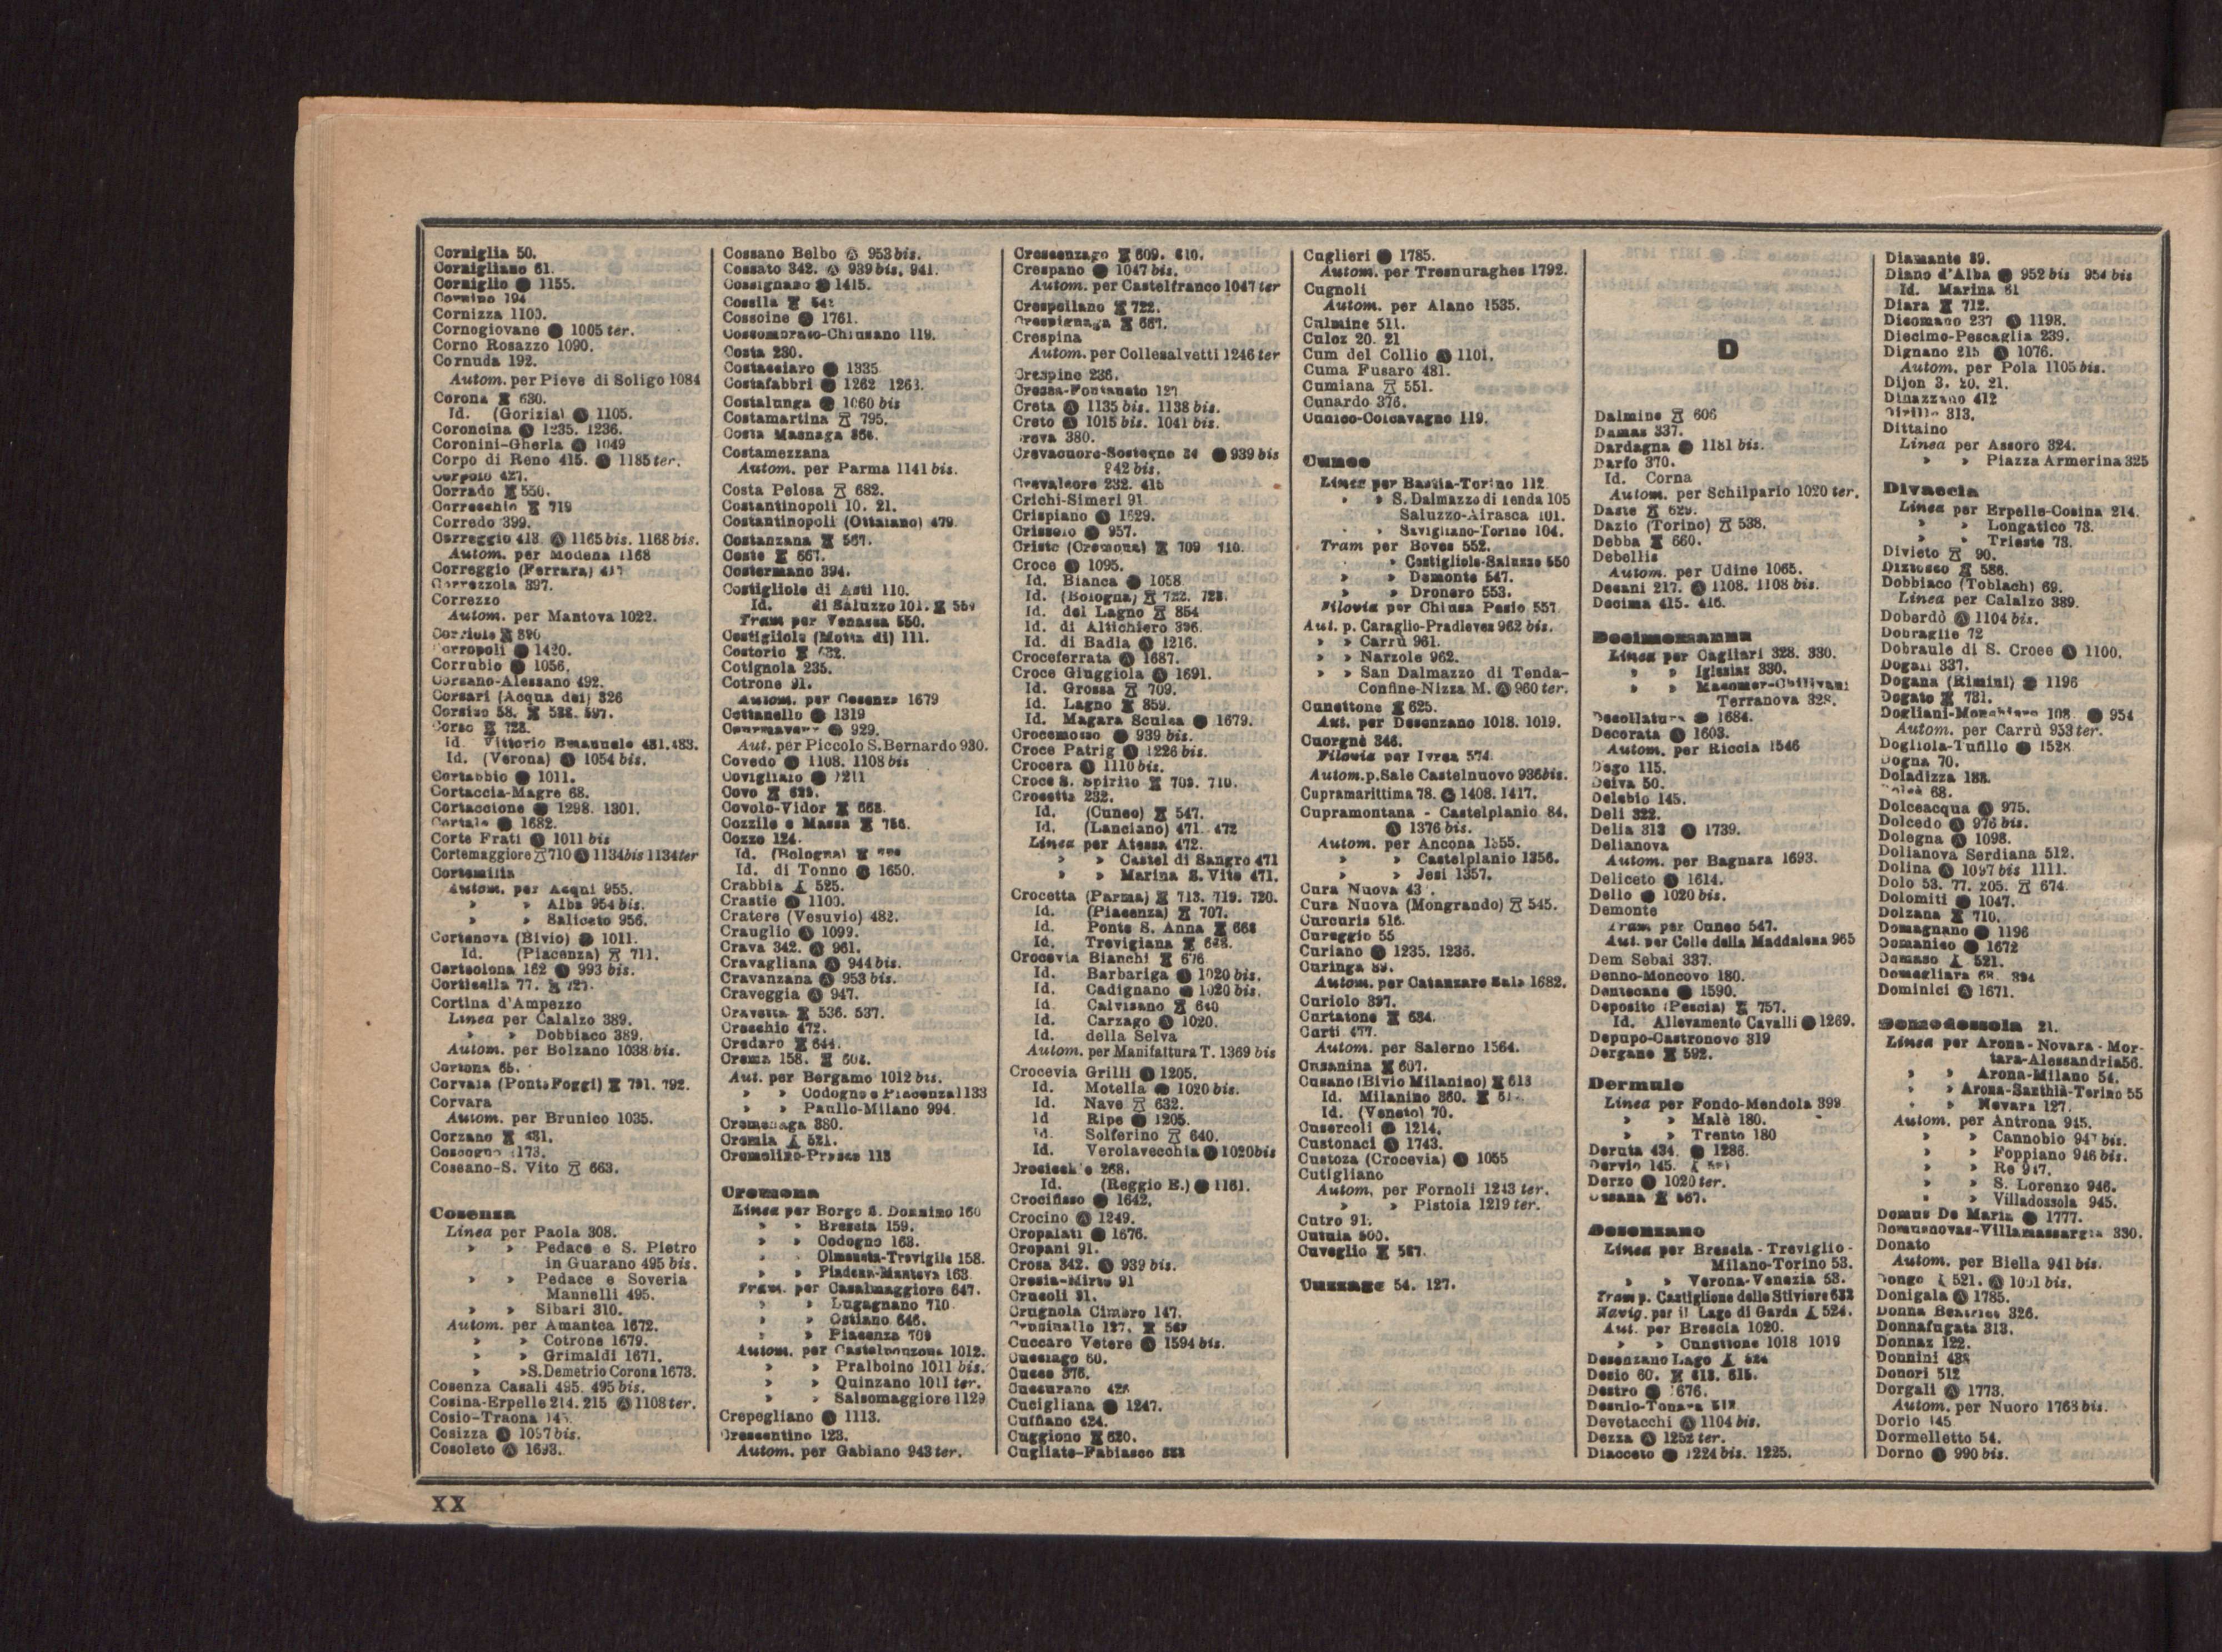 Corniglia 50.
Cornigliano 61.
Corniglio Ⓐ 1155.
Cornino 194
Cornizza 1100.
Cornogiovane Ⓐ 1005 ter.
Corno Rosazzo 1090.
Cornuda 192.
Autom. per Pieve di Soligo 1084
Corona 630.
Id. (Gorizia) Ⓐ 1105.
Coroncina Ⓐ 1235. 1236.
Coronini-Gherla Ⓐ 1049
Corpo di Reno 415. Ⓐ 1185 ter.
427.
Corrado 550.
719
Corredo 399.
Correggio 413 Ⓐ 1165 bis. 1168 bis.
Autom. per Modena 1168
Correggio (Ferrara)
Correzzola 397.
Correzzo
Autom. per Mantova 1022.
Corropoli Ⓐ 1420.
Corrubio Ⓐ 1056.
Corsano-Alessano 492.
Corsari (Acqua dei) 326
Corsico 58. 597.
Corso 728.
Id. Vittorio Emanuele 481. 483.
Id. (Verona) Ⓐ 1054 bis.
Cortabbio Ⓐ 1011.
Cortaccia-Magre 68.
Cortaccione Ⓐ 1298. 1301.
Cortale Ⓐ 1682.
Corte Frati Ⓐ 1011 bis
Cortemaggiore 710 Ⓐ 1134 bis 1134 ter
Cortemilia
Autom. per Acqui 955.
» » Alba 954 bis.
» » Saliceto 956.
Cortenova (Bivio) Ⓐ 1011.
Id. (Piacenza) 711.
Corteolona 162 Ⓐ 993 bis.
Corticella 77.
Cortina d'Ampezzo
Linea per Calalzo 389.
» » Dobbiaco 389.
Autom. per Bolzano 1038 bis.
Cortona 65.
Corvaia (Ponte Foggi) 791. 792.
Corvara
Autom. per Brunico 1035.
Corzano
1173.
Coseano-S. Vito 663.
Cosenza
Linea per Paola 308.
» » Pedace e S. Pietro
in Guarano 495 bis.
» » Pedace e Soveria
Mannelli 495.
» » Sibari 310.
Autom. per Amantea 1672.
» » Cotrone 1679.
» » Grimaldi 1671.
» » S. Demetrio Corona 1673.
Cosenza Casali 495. 495 bis.
Cosina-Erpelle 214. 215 Ⓐ 1108 ter.
Cosio-Traona
Cosizza Ⓐ 1097 bis.
Cosoleto Ⓐ 1693.
Cossano Belbo Ⓐ 953 bis.
Cossato 342. Ⓐ 939 bis. 941.
Cossignano Ⓐ 1415.
Cossila
Cossoine Ⓐ 1761.
Cossombrato-Chiusano 119.
Costa 230.
Costacciaro Ⓐ 1335
Costafabbri Ⓐ 1262 1263.
Costalunga Ⓐ 1060 bis
Costamartina 795.
Costa Masnaga
Costamezzana
Autom. per Parma 1141 bis.
Costa Pelosa 682.
Costantinopoli 10. 21.
Costantinopoli (Ottaiano) 479.
Costanzana 567.
Coste 667.
Costermano 394.
Costigliole di Asti 110.
Id. di Saluzzo 101.
Tram per Venasca 550.
Costigliole (Motta di) 111.
Costorio
Cotignola 235.
Cotrone 91.
Autom. per Cosenza 1679
Cottanello Ⓐ 1319
Courmayeur Ⓐ 929.
Aut. per Piccolo S. Bernardo 930.
Covedo Ⓐ 1108. 1108 bis
Covigliaio Ⓐ 1211
Covo
Covolo-Vidor 668.
Cozzile e Massa 756.
Cozzo 124.
Id. (Bologna)
Id. di Tonno Ⓐ 1650.
Crabbia 525.
Crastie Ⓐ 1100.
Cratere (Vesuvio) 482.
Crauglio Ⓐ 1099.
Crava 342. Ⓐ 961.
Cravagliana Ⓐ 944 bis.
Cravanzana Ⓐ 953 bis.
Craveggia Ⓐ 947.
Cravetta 536. 537.
Crecchio 472.
Credaro 644.
Crema 158.
Aut. per Bergamo 1012 bis.
» » Codogno e Piacenza 1133
» » Paullo-Milano 994.
Cremenaga 380.
Cremia 521.
Cremolino-Prasco 113
Cremona
Linea per Borgo S. Donnino 160
» » Brescia 159.
» » Codogno 163.
» » Olmeneta-Treviglio 158.
» » Piadena-Mantova 163
Tram. per Casalmaggiore 647.
» » Lugagnano 710.
» » Ostiano 646.
» » Piacenza 709
Autom. per Castelponzone 1012.
» » Pralboino 1011 bis.
» » Quinzano 1011 ter.
» » Salsomaggiore 1129
Crepegliano Ⓐ 1113.
Crescentino 123.
Autom. per Gabiano 943 ter.
Crescenzago 609. 610.
Crespano Ⓐ 1047 bis.
Autom. per Castelfranco 1047 ter
Crespellano 722.
Crespignaga 667.
Crespina
Autom. per Collesalvetti 1246 ter
Crespino 236.
Cressa-Fontaneto 127
Creta Ⓐ 1135 bis. 1138 bis.
Creto Ⓐ 1015 bis. 1041 bis.
Creva 380.
Crevacuore-Sostegno Ⓐ 939 bis
942 bis.
Crevalcore 232. 415
Crichi-Simeri 91
Crispiano Ⓐ 1629.
Crissolo Ⓐ 957.
Cristo (Cremona) 709 710.
Croce Ⓐ 1095.
Id. Bianca Ⓐ 1058
Id. (Bologna) 722. 723.
Id. del Lagno 854
Id. di Altichiero 396.
Id. di Badia Ⓐ 1216.
Croceferrata Ⓐ 1687.
Croce Giuggiola Ⓐ 1691.
Id. Grossa 709.
Id. Lagno 859.
Id. Magara Sculca Ⓐ 1679.
Crocemosso Ⓐ 939 bis.
Croce Patrig Ⓐ 1226 bis.
Crocera Ⓐ 1110 bis.
Croce S. Spirito 709. 710.
Crocetta 232.
Id. (Cuneo) 547.
Id. (Lanciano) 471. 472
Linea per Atessa 472.
» » Castel di Sangro 471
» » Marina S. Vito 471.
Crocetta (Parma) 713. 719. 720.
Id. (Piacenza) 707.
Id. Ponte S. Anna 668
Id. Trevigiana 668.
Crocevia Bianchi 676
Id. Barbariga Ⓐ 1020 bis.
Id. Cadignano Ⓐ 1020 bis.
Id. Calvisano 640
Id. Carzago Ⓐ 1020.
Id. della Selva
Autom. per Manifattura T. 1369 bis
Crocevia Grilli Ⓐ 1205.
Id. Motella Ⓐ 1020 bis.
Id. Nave 632.
Id Ripe Ⓐ 1205.
Id. Solferino 640.
Id. Verolavecchia Ⓐ 1020 bis
268.
Id. (Reggio E.) Ⓐ 1161.
Crocifisso Ⓐ 1642.
Crocino Ⓐ 1249.
Cropalati Ⓐ 1676.
Cropani 91.
Crosa 342. Ⓐ 939 bis.
Crosia-Mirto 91
Crucoli 91.
Crugnola Cimbro 147.
Crusinallo 127.
Cuccaro Vetere Ⓐ 1594 bis.
Cucciago 60.
Cucco 376.
Cuccurano
Cucigliana Ⓐ 1247.
Cuffiano 424.
Cuggiono 620.
Cugliate-Fabiasco
Cuglieri Ⓐ 1785.
Autom. per Tresnuraghes 1792.
Cugnoli
Autom. per Alano 1535.
Culmine 511.
Culoz 20. 21
Cum del Collio Ⓐ 1101.
Cuma Fusaro 481.
Cumiana 551.
Cunardo 376.
Cunico-Colcavagno 119.
Cuneo
Linea per Bastia-Torino 112
» » S. Dalmazzo di Tenda 105
Saluzzo-Airasca 101.
» » Savigliano-Torino 104.
Tram per Boves 552.
» » Costigliole-Saluzzo 550
» » Demonte 547.
» » Dronero 553.
Filovia per Chiusa Pesio 557
Aut. p. Caraglio-Pradleves 962 bis.
» » Carrù 961.
» » Narzole 962.
» » San Dalmazzo di Tenda-
Confine-Nizza M. Ⓐ 960 ter.
Cunettone 625.
Aut. per Desenzano 1018. 1019.
Cuorgnè 346.
Filovia per Ivrea 574.
Autom. p. Sale Castelnuovo 936 bis.
Cupramarittima 78. Ⓐ 1408. 1417.
Cupramontana - Castelplanio 84.
Ⓐ 1376 bis.
Autom. per Ancona 1355.
» » Castelplanio 1356.
» » Jesi 1357.
Cura Nuova
Cura Nuova (Mongrando) 545.
Curcuris 516.
Cureggio 55
Curiano Ⓐ 1235. 1236.
Curinga 89.
Autom. per Catanzaro Sala 1682.
Curiolo 397.
Curtatone 634.
Curti 477.
Autom. per Salerno 1564.
Cusanina 607.
Cusano (Bivio Milanino) 613
Id. Milanino 360.
Id. (Veneto) 70.
Cusercoli Ⓐ 1214.
Custonaci Ⓐ 1743.
Custoza (Crocevia) Ⓐ 1055
Cutigliano
Autom. per Fornoli 1243 ter.
» » Pistoia 1219 ter.
Cutro 91.
Cutula 500.
Cuveglio 587.
Cuzzago 54. 127.
D
Dalmine 606
Damas 337.
Dardagna Ⓐ 1181 bis.
Darfo 370.
Id. Corna
Autom. per Schilpario 1020 ter.
Daste 629.
Dazio (Torino) 538.
Debba 660.
Debellis
Autom. per Udine 1065.
Decani 217. Ⓐ 1108. 1108 bis.
Decima 415. 416.
Decimomannu
Linea per Cagliari 328. 330.
» » Iglesias 330.
» » Macomer-Chilivani
Terranova 328.
Decollatura Ⓐ 1684.
Decorata Ⓐ 1603.
Autom. per Riccia 1546
Dego 115.
Deiva 50.
Delebio 145.
Deli 322.
Delia 313 Ⓐ 1739.
Delianova
Autom. per Bagnara 1693.
Deliceto Ⓐ 1614.
Dello Ⓐ 1020 bis.
Demonte
Tram. per Cuneo 547.
Aut. per Colle della Maddalena 965
Dem Sebai 337.
Denno-Moncovo 180.
Dentecane Ⓐ 1590.
Deposito (Pescia) 757.
Id. Allevamento Cavalli Ⓐ 1269.
Depupo-Castronovo 319
Dergano 592.
Dermulo
Linea per Fondo-Mendola 399
» » Malè 180.
» » Trento 180
Deruta 434. Ⓐ 1286.
Dervio 145.
Derzo Ⓐ 1020 ter.
567.
Desenzano
Linea per Brescia - Treviglio -
Milano-Torino 53.
» » Verona-Venezia 53.
Tram p. Castiglione delle Stiviere 632
Navig. per il Lago di Garda 524.
Aut. per Brescia 1020.
» » Cunettone 1018 1019
Desenzano Lago 524
Desio 60. 613. 615.
Destro Ⓐ 1676.
Desulo-Tonara 512
Devetacchi Ⓐ 1104 bis.
Dezza Ⓐ 1252 ter.
Diacceto Ⓐ 1224 bis. 1225.
Diamante 89.
Diano d'Alba Ⓐ 952 bis 954 bis
Id. Marina 81
Diara 712.
Dicomano 237 Ⓐ 1198.
Diecimo-Pescaglia 239.
Dignano 215 Ⓐ 1076.
Autom. per Pola 1105 bis.
Dijon 3. 20. 21.
Dinazzano 412
Dirillo 313.
Dittaino
Linea per Assoro 324.
» » Piazza Armerina 325
Divaccia
Linea per Erpelle-Cosina 214.
» » Longatico 73.
» » Trieste 73.
Divieto 90.
586.
Dobbiaco (Toblach) 69.
Linea per Calalzo 389.
Doberdò Ⓐ 1104 bis.
Dobraglie 72
Dobraule di S. Croce Ⓐ 1100.
Dogali 337.
Dogana (Rimini) Ⓐ 1196
Dogato 731.
Dogliani-Monchiero 108 Ⓐ 954
Autom. per Carrù 953 ter.
Dogliola-Tufillo Ⓐ 1528
Dogna 70.
Doladizza 188.
68.
Dolceacqua Ⓐ 975.
Dolcedo Ⓐ 976 bis.
Dolegna Ⓐ 1098.
Dolianova Serdiana 512.
Dolina Ⓐ 1097 bis 1111.
Dolo 53. 77. 205. 674.
Dolomiti Ⓐ 1047.
Dolzana 710.
Domagnano Ⓐ 1196
Domanico Ⓐ 1672
Domaso 521.
Domegliara 68. 394
Dominici Ⓐ 1671.
Domodossola 21.
Linea per Arona - Novara - Mor-
tara-Alessandria 56.
» » Arona-Milano 54.
» » Arona-Santhià-Torino 55
» » Novara 127.
Autom. per Antrona 945.
» » Cannobio 947 bis.
» » Foppiano 946 bis.
» » Re 947.
» » S. Lorenzo 946.
» » Villadossola 945.
Domus De Maria Ⓐ 1777.
Domusnovas-Villamassargia 330.
Donato
Autom. per Biella 941 bis.
Dongo 521. Ⓐ 1001 bis.
Donigala Ⓐ 1785.
Donna Beatrice 326.
Donnafugata 313.
Donnaz 122.
Donnini 438
Donori 512
Dorgali Ⓐ 1773.
Autom. per Nuoro 1768 bis.
Dorio 145
Dormelletto 54.
Dorno Ⓐ 990 bis.
XX